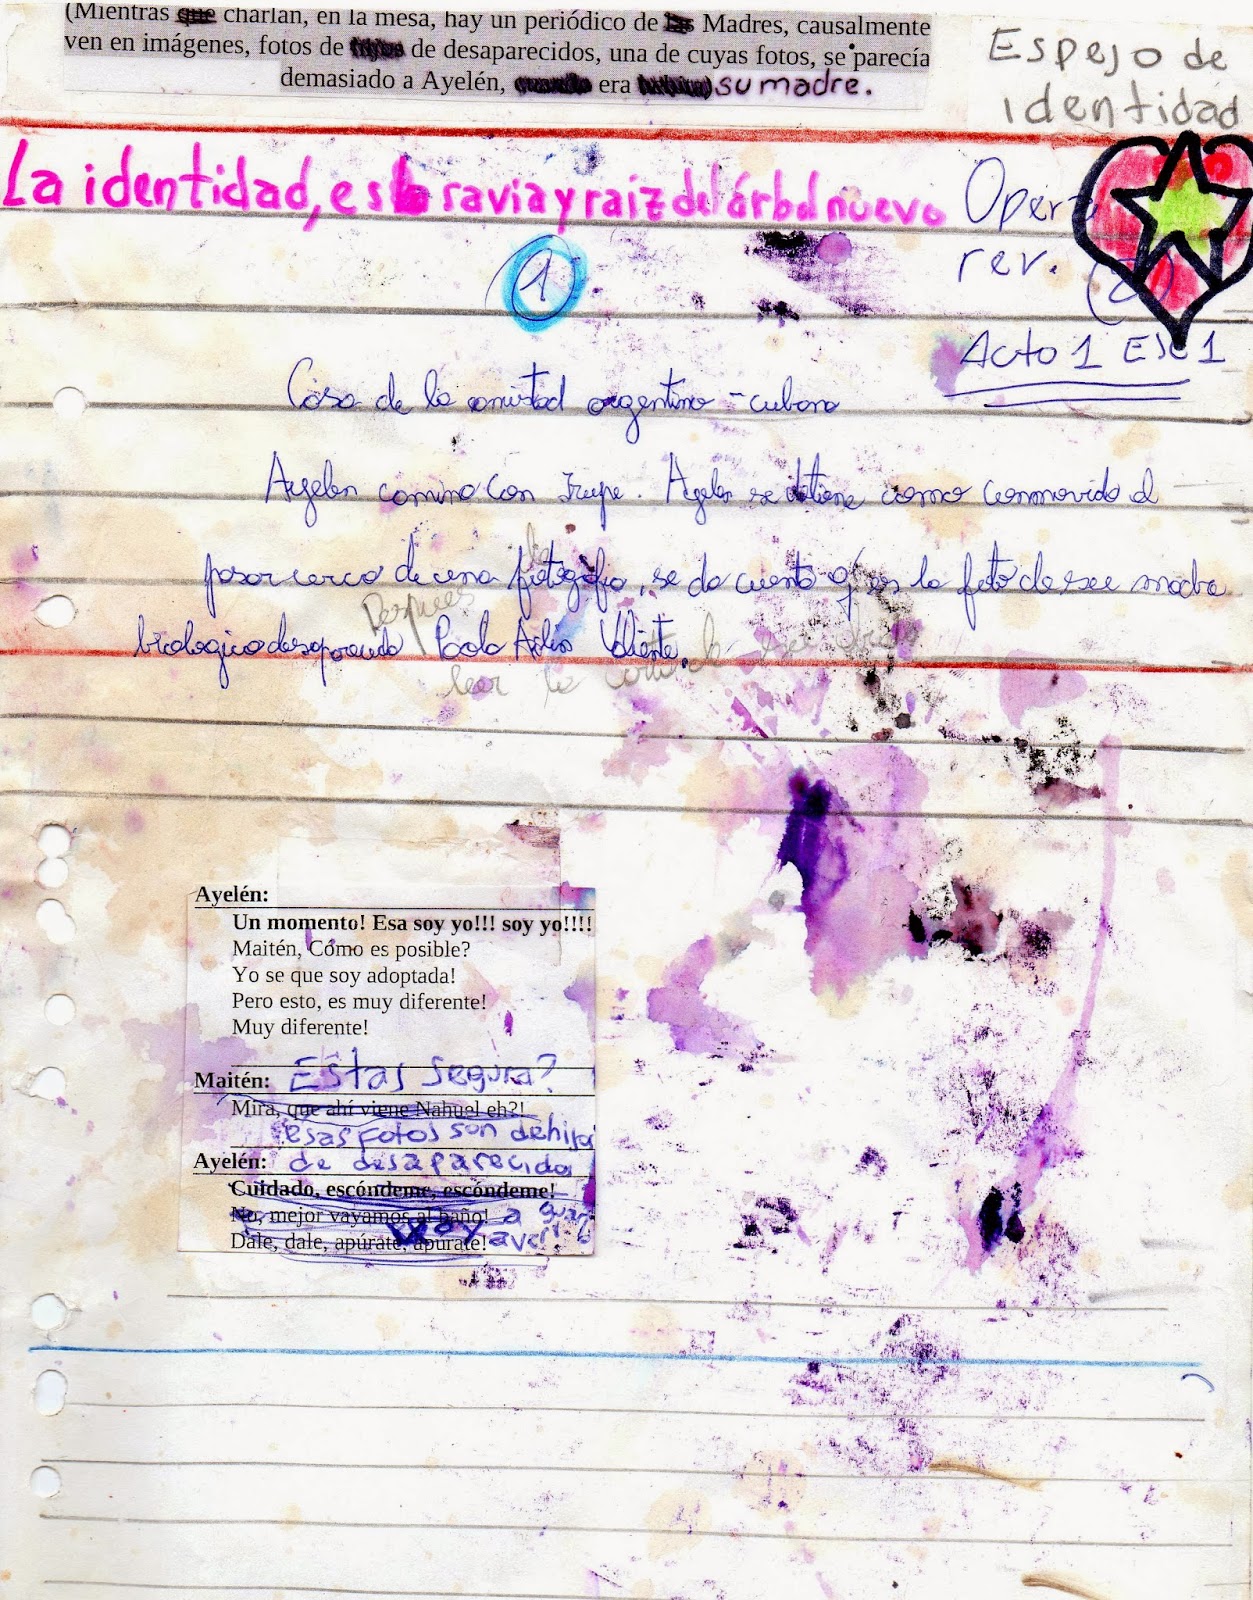 (Mientras que charlan, en la mesa, hay un periódico de las Madres, causalmente
ven en imágenes, fotos de hijos de desaparecidos, una de cuyas fotos, se parecía
demasiado a Ayelén, cuando era su madre.
Espejo de
identidad
La identidad, es la savia y raiz del árbol nuevo
Opera
rev. (2)
1
Acto 1 Esc 1
Casa de la amistad argentino-cubana
Ayelen camina con Irupe. Ayelen se detiene como conmovida al
pasar cerca de una fotografía, se da cuenta q' es la foto de su madre
biologica desaparecida Paola Valiente.
Despues
leer la carta de su
Ayelén:
Un momento! Esa soy yo!!! soy yo!!!!
Maitén, Cómo es posible?
Yo se que soy adoptada!
Pero esto, es muy diferente!
Muy diferente!
Maitén: Estas segura?
Mira, que ahí viene Nahuel eh?!
esas fotos son de hijos
Ayelén: de desaparecidos
Cuidado, escóndeme, escóndeme!
No, mejor vayamos al baño! a
Dale, dale, apúrate, apurate!
Voy